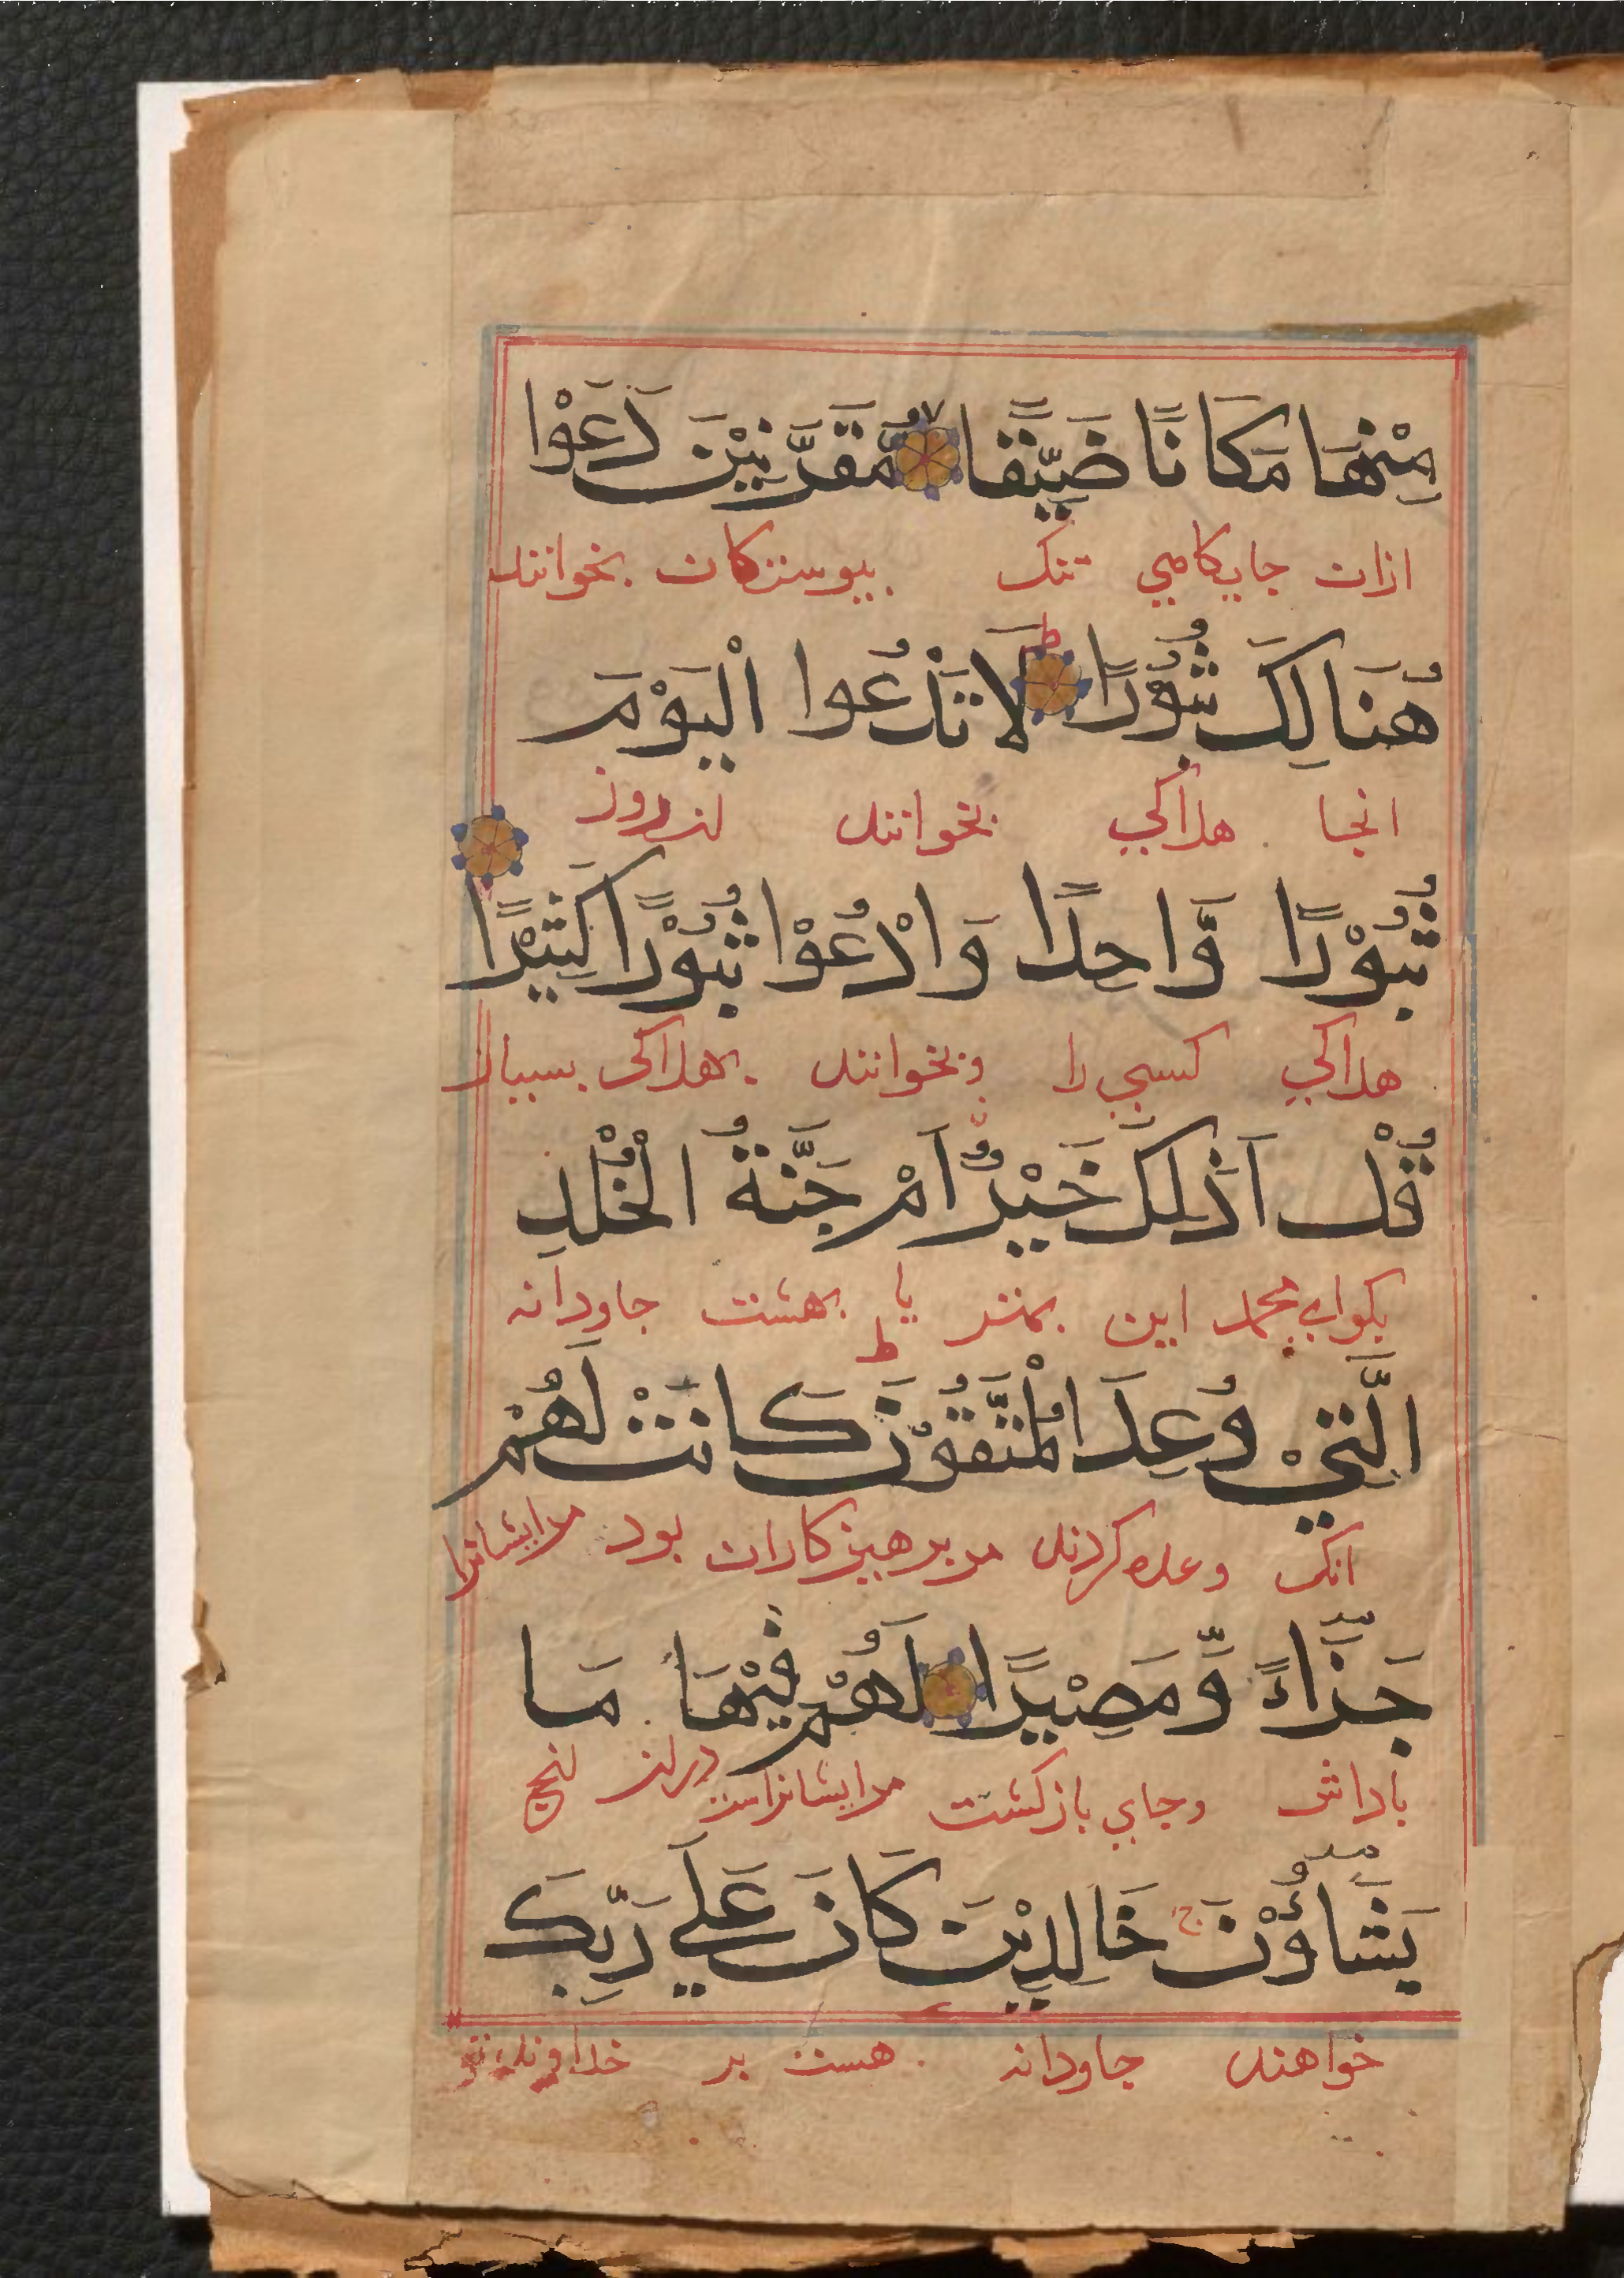 مِنْهَا مَكَانًا ضَيِّقًا مُّقَرَّنِيْنَ دَعَوْا
ازان جايكاهي تنك بيوستكان بخوانند
هُنَالِكَ ثُبُوْرًا ط لَا تَدْعُوا الْيَوْمَ
انجا هلاكي بخوانند امروز
ثُبُوْرًا وَّاحِدًا وَادْعُوْا ثُبُوْرًا كَثِيْرًا
هلاكي كسي را و بخوانند هلاكي بسيار
قُلْ اَذٰلِكَ خَيْرٌ اَمْ جَنَّةُ الْخُلْدِ
بكواي محمد اين بهتر يا بهشت جاودانه
الَّتِيْ وُعِدَ الْمُتَّقُوْنَ ط كَانَتْ لَهُمْ
انك وعده كردند مر برهيزكاران بود مرايشانرا
جَزَآءً وَّمَصِيْرًا لَهُمْ فِيْهَا مَا
باداش وجاي بازكشت مرايشانراست دران انج
يَشَآؤُنَ ج خَالِدِيْنَ كَانَ عَلٰي رَبِّكَ
خواهند جاودانه هست بر خداوند تو